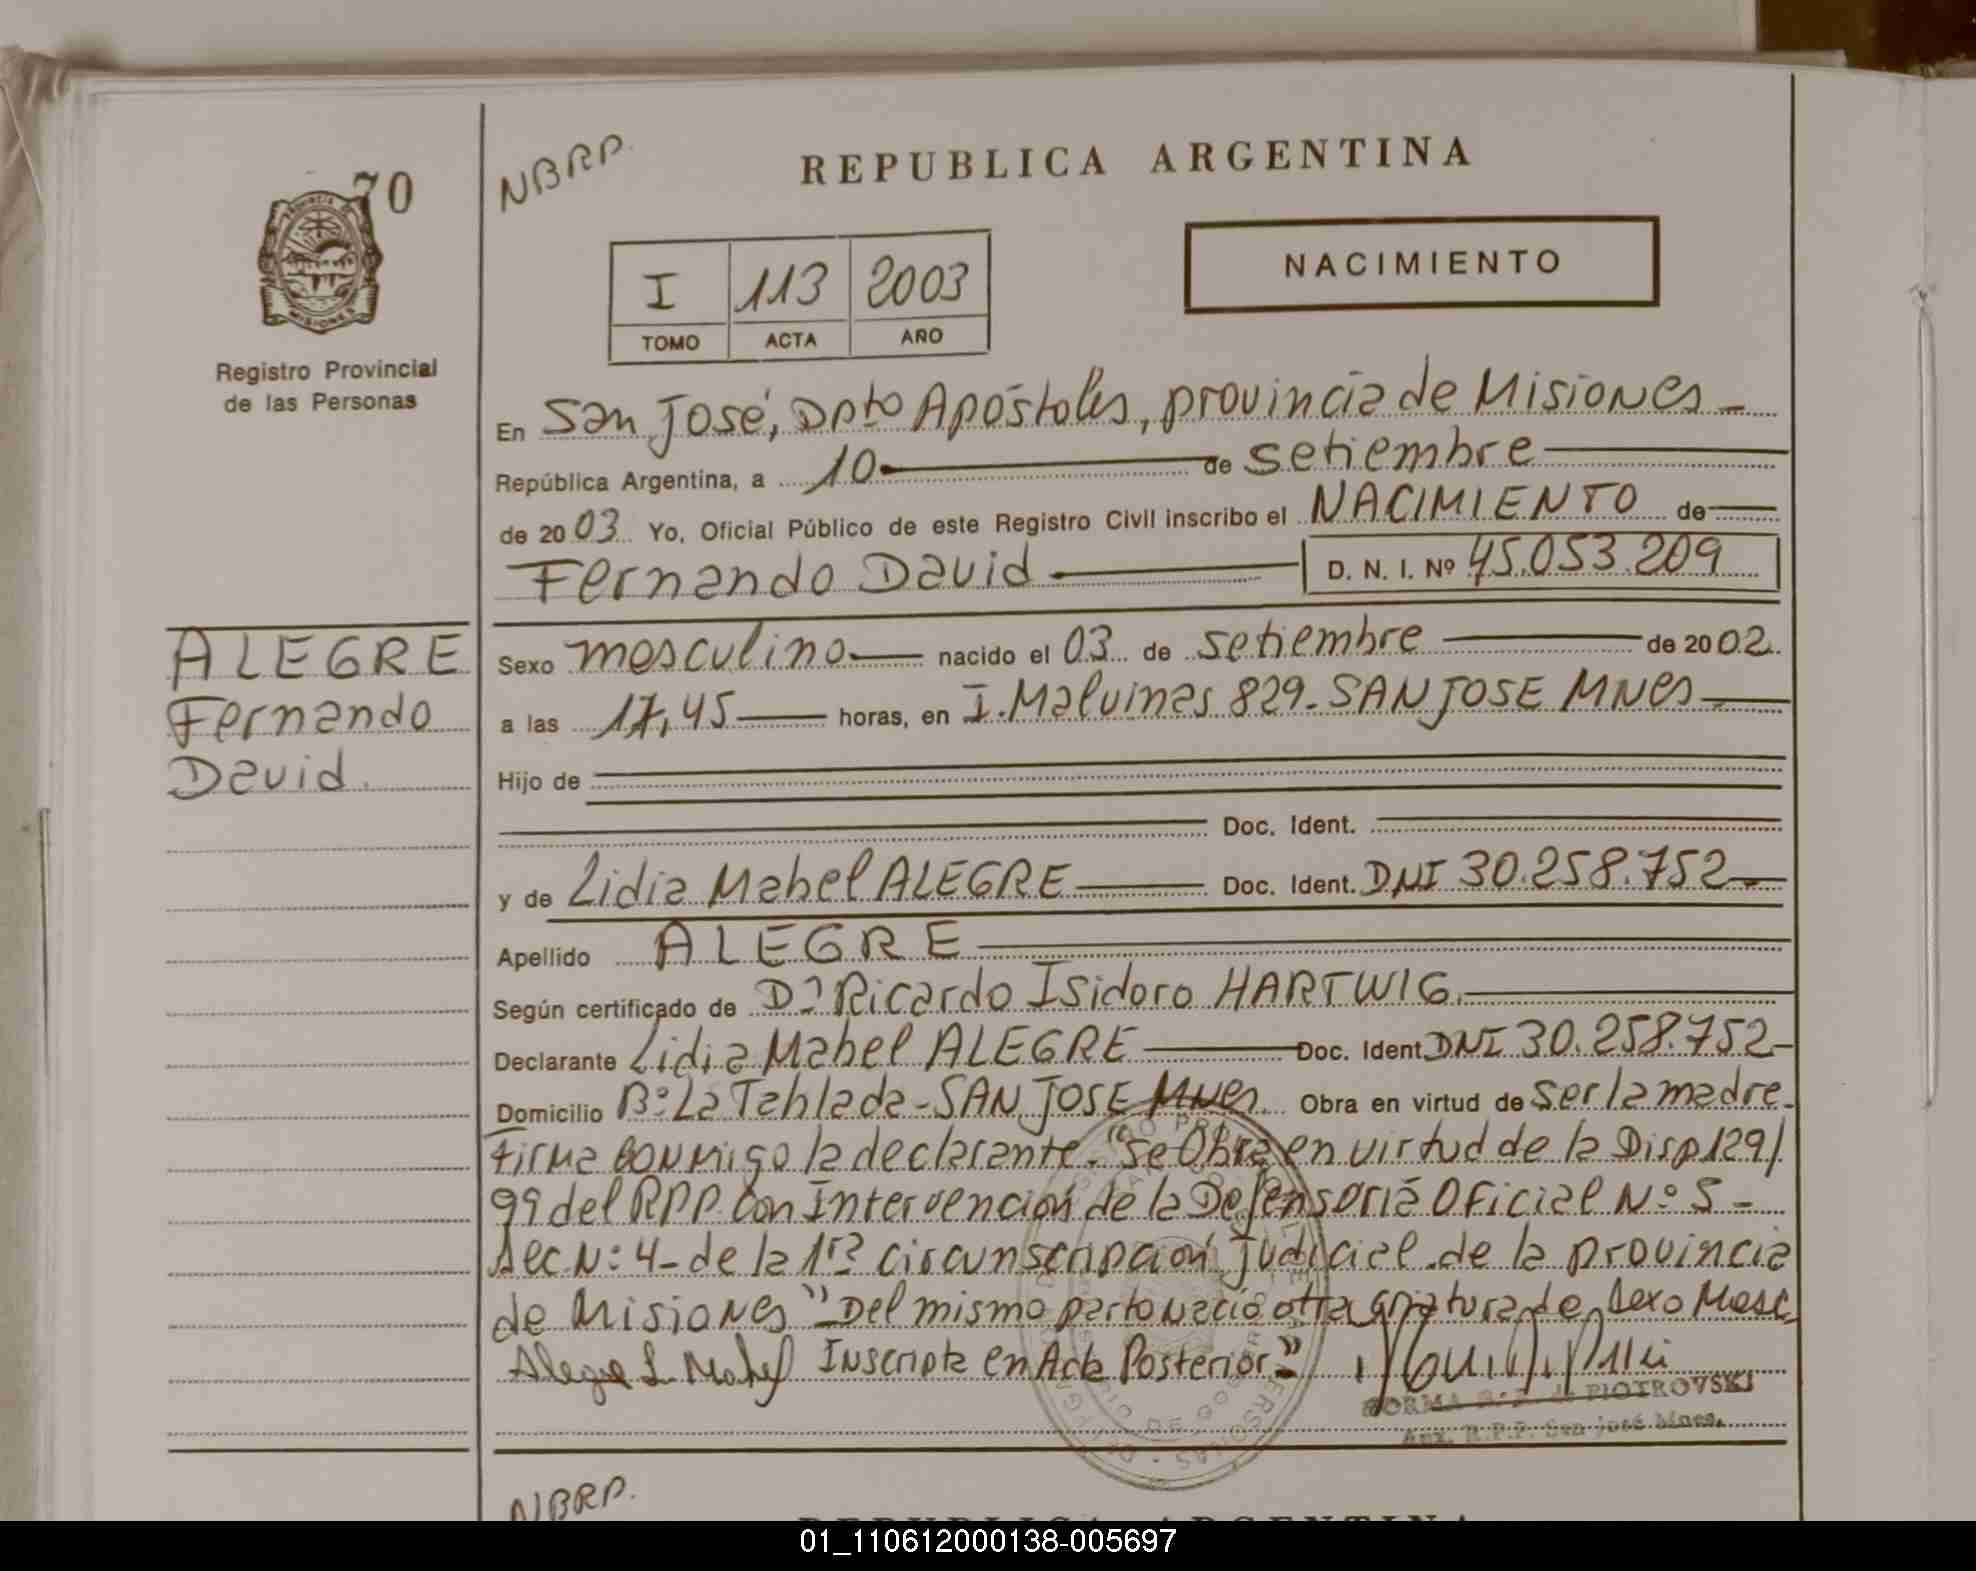 70
NBRP.
REPUBLICA ARGENTINA
NACIMIENTO
I 113 2003
TOMO ACTA AÑO
PROVINCIA DE
MISIONES
Registro Provincial
de las Personas
En San José, Dpto Apóstoles, provincia de Misiones
República Argentina, a 10 de setiembre
de 2003 Yo, Oficial Público de este Registro Civil inscribo el NACIMIENTO de
Fernando David D. N. I. Nº 45.053.209
ALEGRE
Fernando
David.
Sexo masculino nacido el 03 de setiembre de 2002.
a las 17,45 horas, en I. Malvinas 829- SAN JOSE MNes
Hijo de
Doc. Ident.
y de Lidia Mabel ALEGRE Doc. Ident. DNI 30.258.752
Apellido ALEGRE
Según certificado de Dr Ricardo Isidoro HARTWIG.
Declarante Lidia Mabel ALEGRE Doc. Ident DNI 30.258.752
Domicilio Bº La Tablada - SAN JOSE MNes. Obra en virtud de ser la madre.
Firma conmigo la declarante. "Se Obra en virtud de la Disp 129/
99 del RPP. Con Intervención de la Defensoría Oficial Nº 5 -
Sec Nº 4- de la 1ra circunscripción judicial de la provincia
de Misiones" Del mismo parto nació otra criatura de sexo Masc
Alegre L. Mabel Inscripta en Acta Posterior."
NORMA PIOTROVSKI
Aux. R.P.P. San José Mnes.
NBRP.
REPUBLICA ARGENTINA
01_110612000138-005697